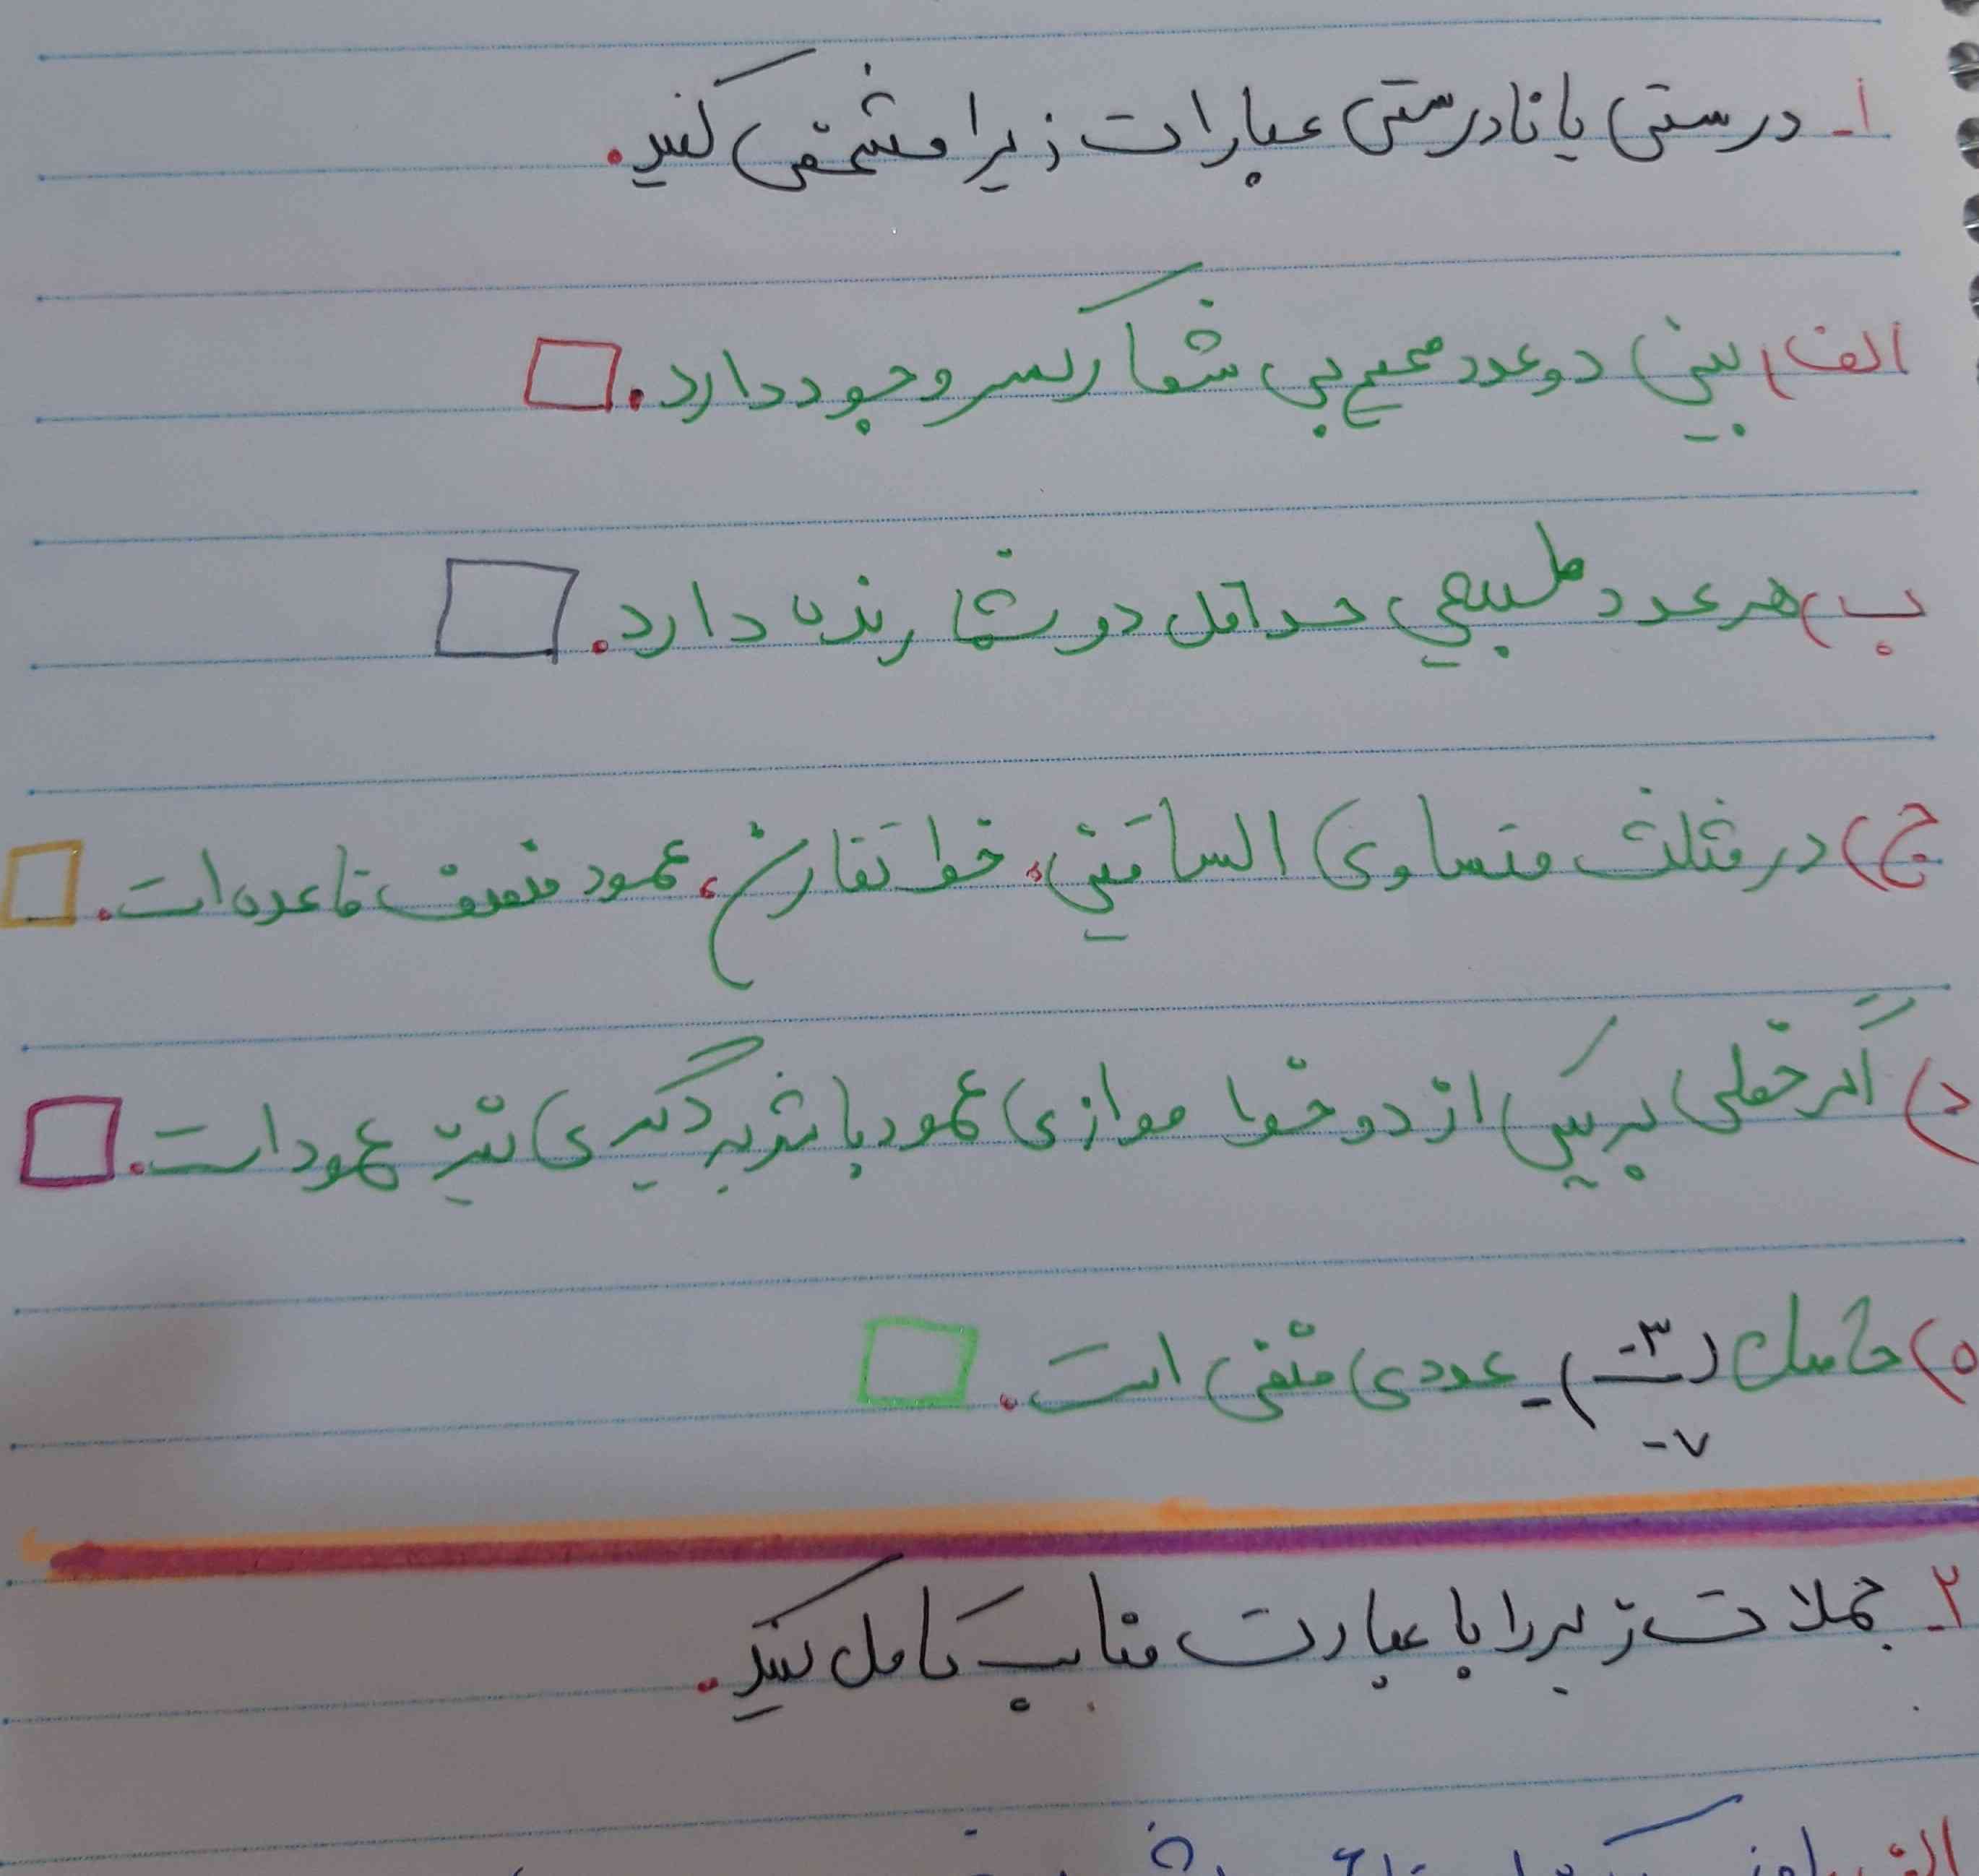 ۱- درستی یا نادرستی عبارات زیرا مشخص کنید.
الف) بین دو عدد صحیح بی شمار کسر وجود دارد.
ب) هر عدد طبیعی حداقل دو شمارنده دارد.
ج) در مثلث متساوی الساقین، خط تقارن، عمود منصف قاعده است.
د) اگر خطی بر یکی از دو خط موازی عمود باشد بر دیگری نیز عمود است.
ه) حاصل (-۳/-۷)- عددی منفی است.
۲- جملات زیر را با عبارت مناسب کامل کنید.